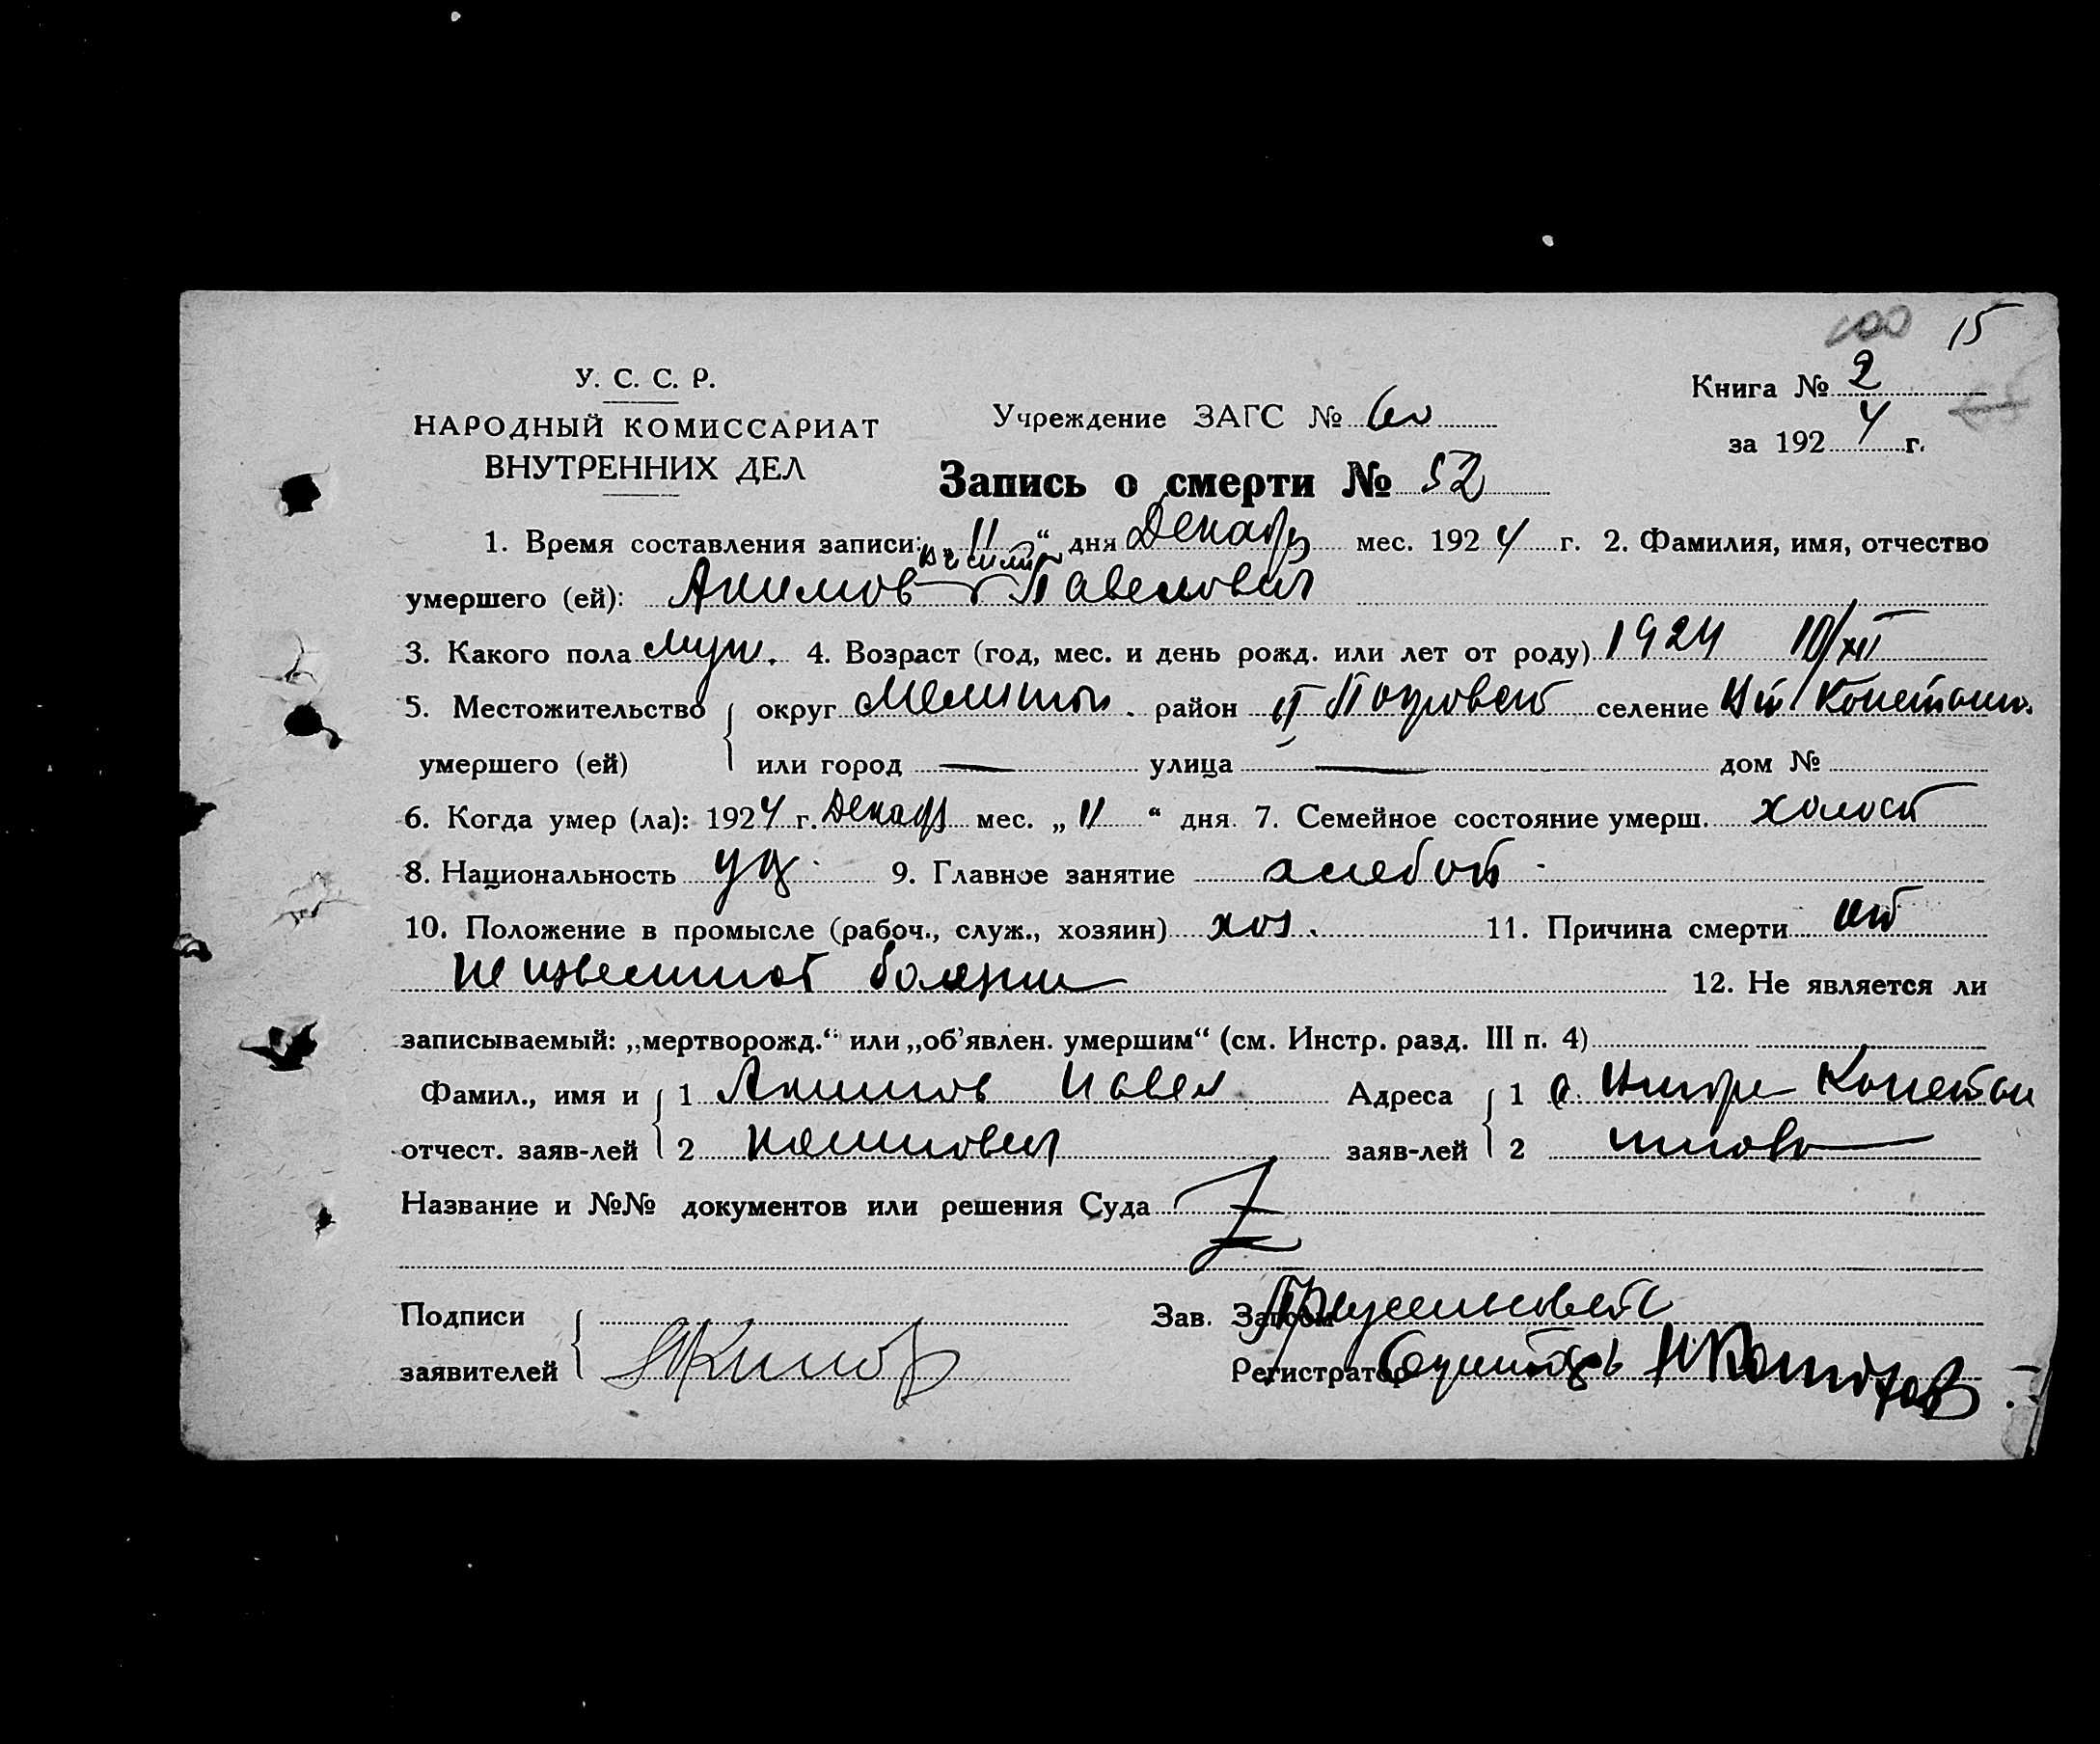 100 15
У. С. С. Р.
НАРОДНЫЙ КОМИССАРИАТ
ВНУТРЕННИХ ДЕЛ
Учреждение ЗАГС №
Книга № 2
за 1924 г.
Запись о смерти № 52
1. Время составления записи: „11“ дня Декабр мес. 1924 г. 2. Фамилия, имя, отчество
умершего (ей): Акимов Павелович
3. Какого пола муж. 4. Возраст (год, мес. и день рожд. или лет от роду) 1924 10/XII
5. Местожительство округ Мелитоп. район II Покровск селение Констант.
умершего (ей) или город — улица — дом №
6. Когда умер (ла): 1924 г. Декабр мес. „11“ дня. 7. Семейное состояние умерш. холост
8. Национальность 9. Главное занятие хлебоп
10. Положение в промысле (рабоч., служ., хозяин) хоз. 11. Причина смерти от
не известной болезни 12. Не является ли
записываемый: „мертворожд.“ или „об'явлен. умершим“ (см. Инстр. разд. III п. 4)
Фамил., имя и 1 Акимов Павел Адреса 1 с. Констан
отчест. заяв-лей 2 заяв-лей 2 тинов
Название и №№ документов или решения Суда
Подписи Зав. Загсом
заявителей Акимов Регистратор